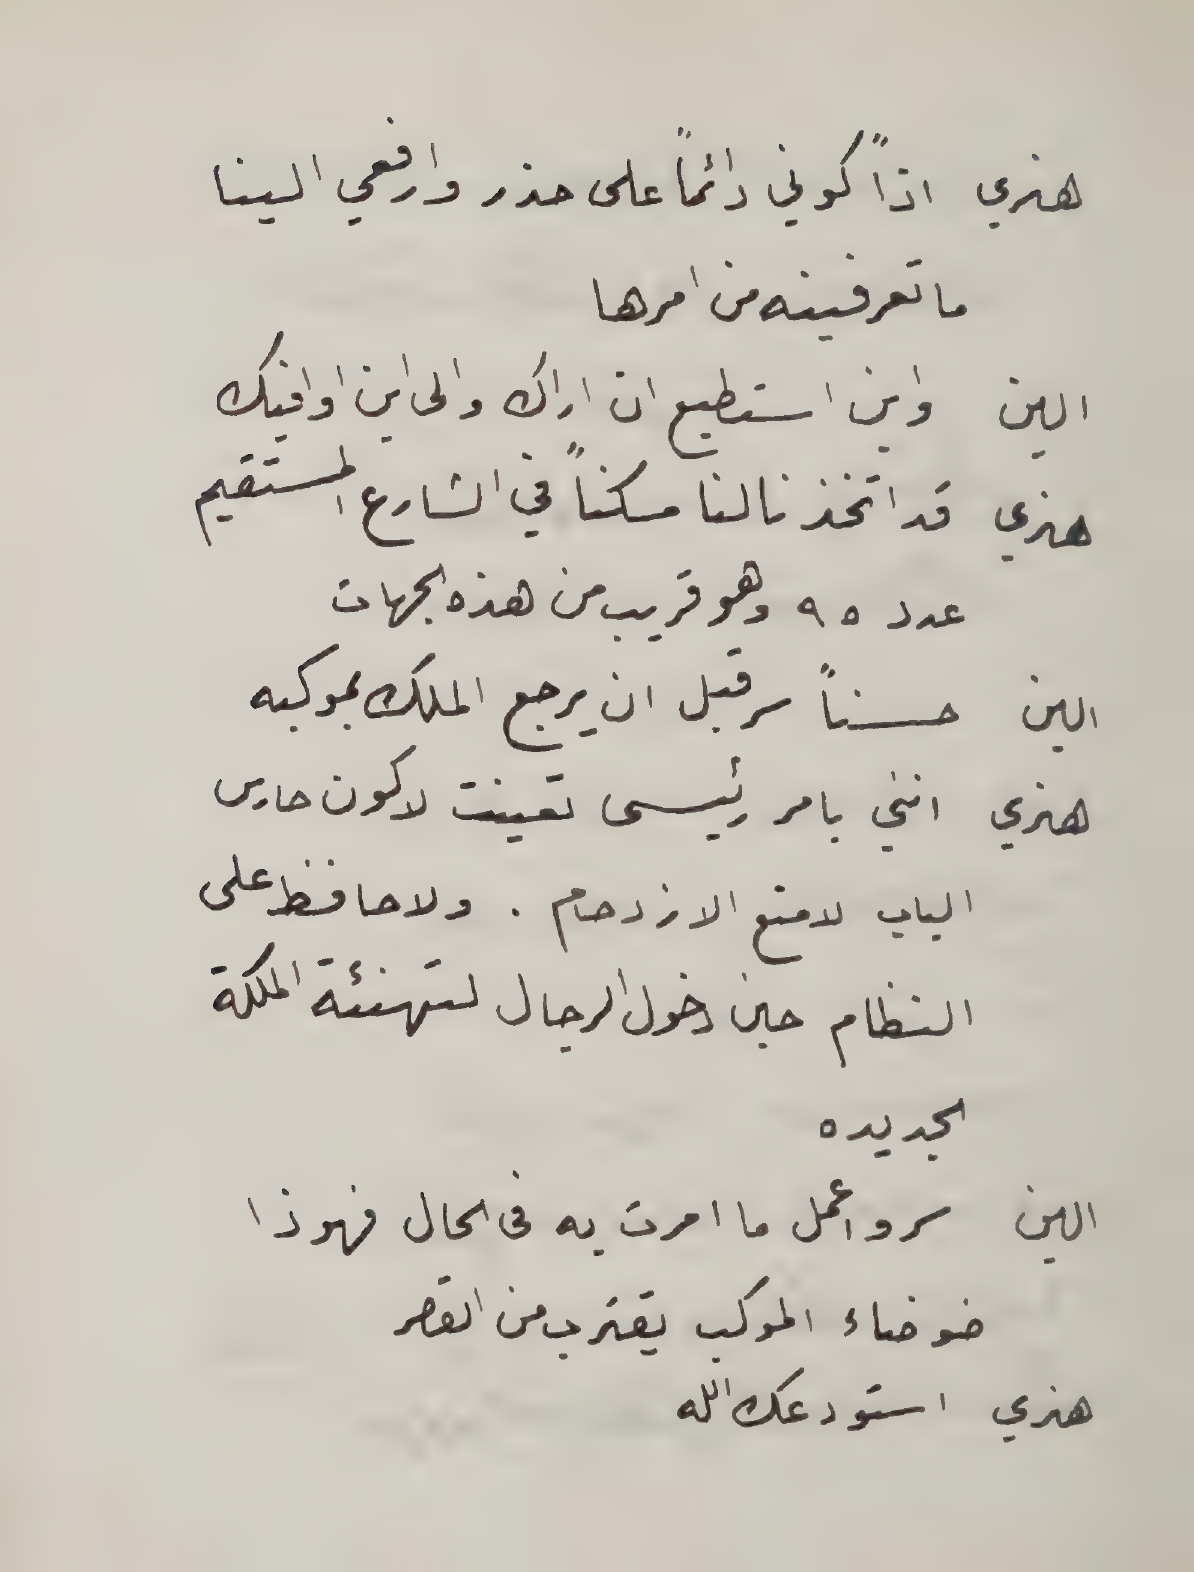 هنري اذاً كوني دائماً على حذر وارفعي الينا
ما تعرفينه من امرها
الين واين استطيع ان اراك والى اين اوافيك
هنري قد اتخذنا لنا مسكناً في الشارع المستقيم
عدد ٩٥ وهو قريب من هذه الجهات
الين حسناً سر قبل ان يرجع الملك بموكبه
هنري انني بامر رئيسى تعينت لاكون حارس
الباب لامنع الازدحام . ولاحافظ على
النظام حين دخول الرجال لتهنئة الملكة
الجديده
الين سر واعمل ما امرت به فى الحال فهوذا
ضوضاء الموكب يقترب من القصر
هنري استودعك الله